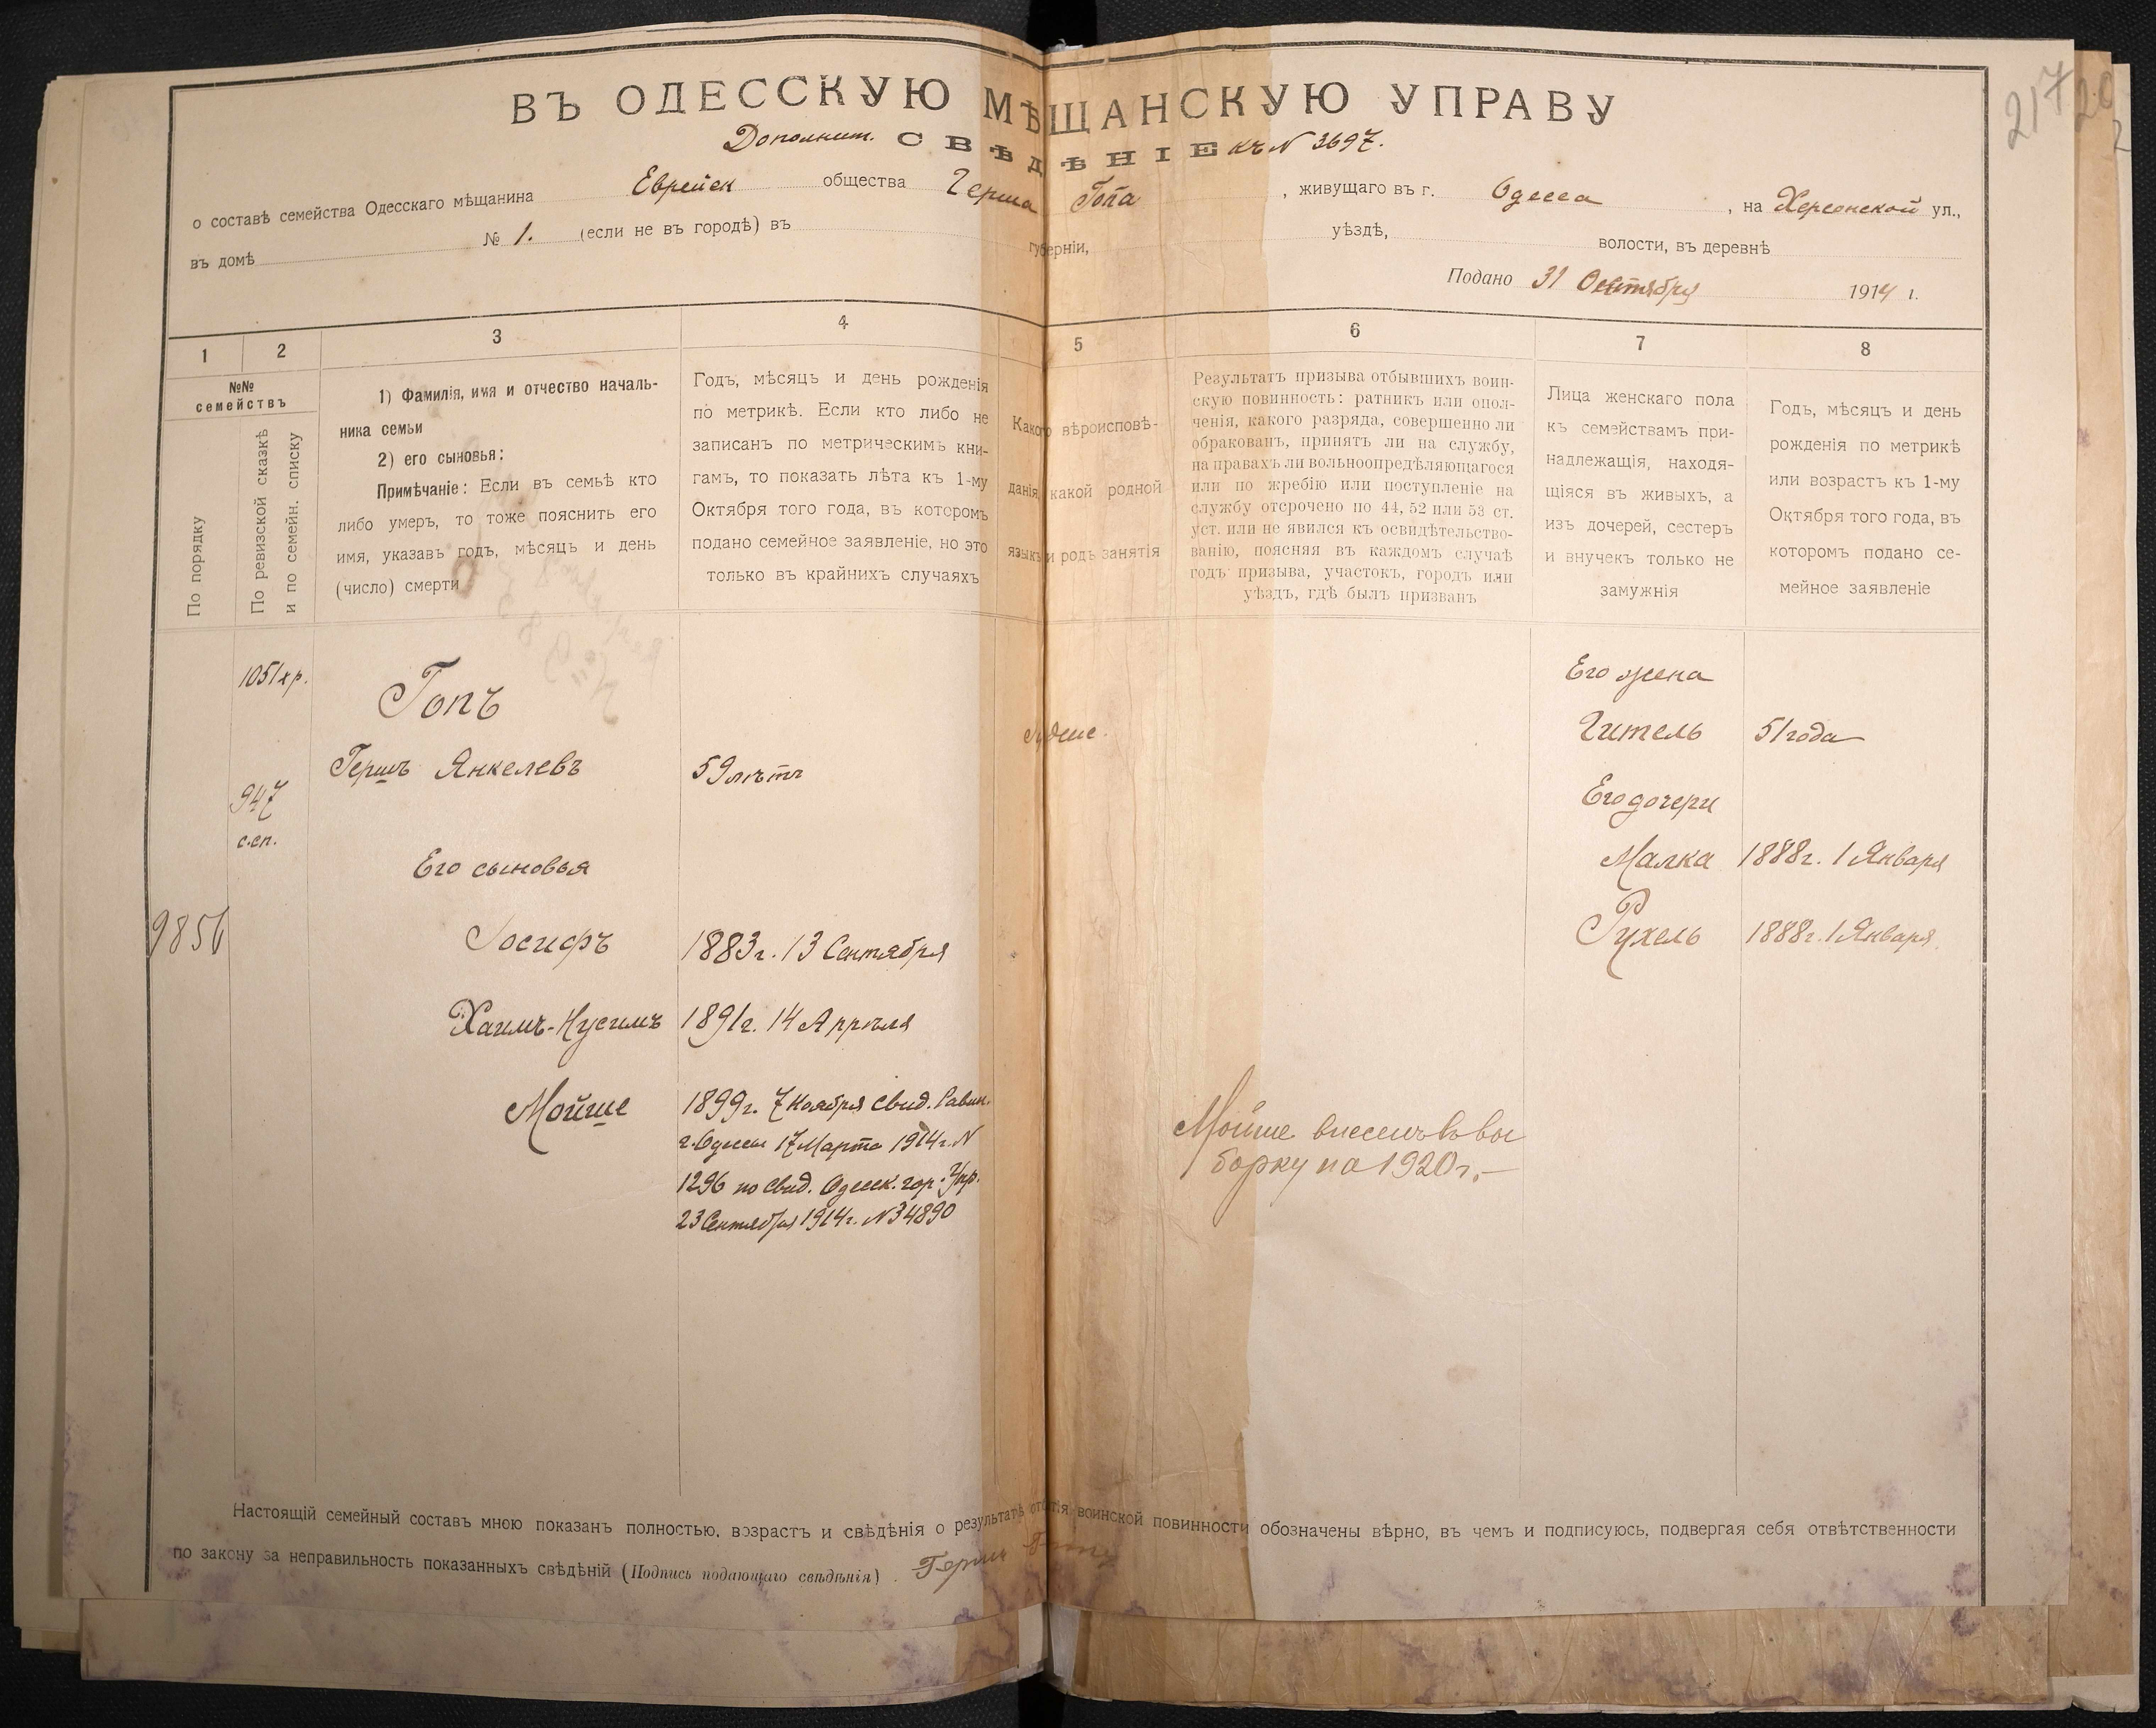 217 20
2
ВЪ ОДЕССКУЮ МѢЩАНСКУЮ УПРАВУ
Дополнит. СВѢДѢНІЕ къ № 3697.
о составѣ семейства Одесскаго мѣщанина Еврейск общества Герша Гопа, живущаго въ г. Одесса, на Херсонской ул.,
въ домѣ № 1. (если не въ городѣ) въ губерніи, уѣздѣ, волости, въ деревнѣ
Подано 31 Октября 1914 г.
1 2 3 4 5 6 7 8
№№ семействъ
По порядку
По ревизской сказкѣ
и по семейн. списку
1) Фамилія, имя и отчество началь-
ника семьи
2) его сыновья:
Примѣчаніе: Если въ семьѣ кто
либо умеръ, то тоже пояснить его
имя, указавъ годъ, мѣсяцъ и день
(число) смерти
Годъ, мѣсяцъ и день рожденія
по метрикѣ. Если кто либо не
записанъ по метрическимъ кни-
гамъ, то показать лѣта къ 1-му
Октября того года, въ которомъ
подано семейное заявленіе, но это
только въ крайнихъ случаяхъ
Какого вѣроисповѣ-
данія, какой родной
языкъ и родъ занятія
Результатъ призыва отбывшихъ воин-
скую повинность: ратникъ или опол-
ченія, какого разряда, совершенно ли
обракованъ, принятъ ли на службу,
на правахъ ли вольноопредѣляющагося
или по жребію или поступленіе на
службу отсрочено по 44, 52 или 53 ст.
уст. или не явился къ освидѣтельство-
ванію, поясняя въ каждомъ случаѣ
годъ призыва, участокъ, городъ или
уѣздъ, гдѣ былъ призванъ
Лица женскаго пола
къ семействамъ при-
надлежащія, находя-
щіяся въ живыхъ, а
изъ дочерей, сестеръ
и внучекъ только не
замужнія
Годъ, мѣсяцъ и день
рожденія по метрикѣ
или возрастъ къ 1-му
Октября того года, въ
которомъ подано се-
мейное заявленіе
1051 хр.
947
с.сп.
9856
Гопъ
Гершъ Янкелевъ 59 лѣтъ
Его сыновья
Іосифъ 1883г. 13 Сентября
Хаимъ-Нусимъ 1891г. 14 Апрѣля
Мойше 1899г. 7 Ноября свид. Равин.
г. Одессы 17 Марта 1914г. №
1296 по свид. Одесск. гор. Упр.
23 Сентября 1914г. № 34890
Іудейс.
Мойше внесенъ въ вы
борку на 1920 г.
Его жена
Гитель 51 года
Его дочери
Малка 1888г. 1 Января
Рухель 1888г. 1 Января
Настоящій семейный составъ мною показанъ полностью, возрастъ и свѣдѣнія о результатѣ отбытія воинской повинности обозначены вѣрно, въ чемъ и подписуюсь, подвергая себя отвѣтственности
по закону за неправильность показанныхъ свѣдѣній (Подпись подающаго свѣдѣнія). Гершъ Гопъ